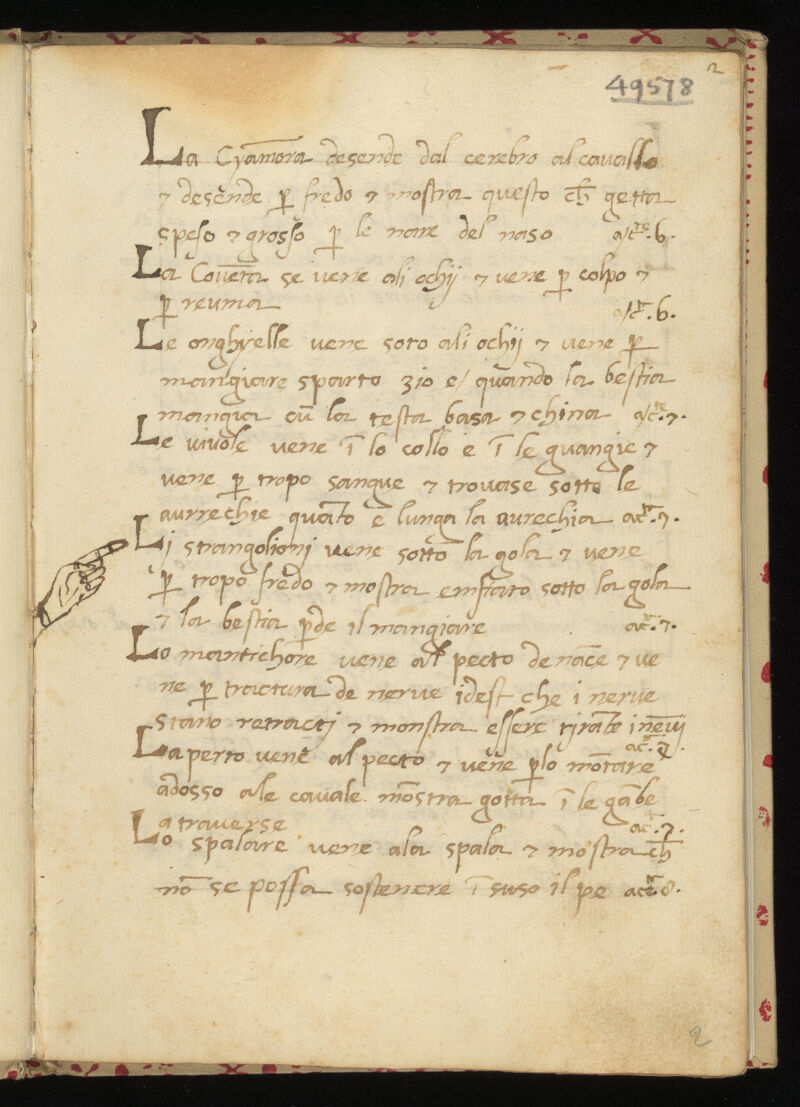 2
49578
La Cyamora desende dal cerebro al cavallo
⁊ desende ꝑ fredo ⁊ mostra questo ch̄ getta
speso ⁊ grosso ꝑ le nare del naso a cte. 6.
La Coverta se vene ali ochij ⁊ vene ꝑ colpo ⁊
ꝑ reuma a cte. 6.
Le onghyelle vene soto ali ochij ⁊ vene ꝑ
mangiare sparto zio e/ quando la bestia
mangia cū la testa basa ⁊ china a cte. 7.
Le vivole vene ī lo collo e ī le guangie ⁊
vene ꝑ tropo sangue ⁊ trovase sotto le
aurrechie quāto e lunga la aurechia acte. 7.
Li strangolionj vene sotto la gola ⁊ vene
ꝑ tropo fredo ⁊ mostra enfiato sotto la gola
⁊ la bestia ꝑde il mangiare acte. 7.
Lo mantichore vene al pecto denāce ⁊ ve
ne ꝑ tractura de nerve idest che i nerve
stano retractj ⁊ monstra essere tirate i nervij
acte. 7.
La perto vene al pecto ⁊ vene ꝑ lo mōtare
adosso ale cavale. mōstra gotta ī le gābe
a traverse acte. 7.
Lo spalare vene ala spala ⁊ mostra ch̄
nō se possa sostenere ī suso il pe acte. 8.
2